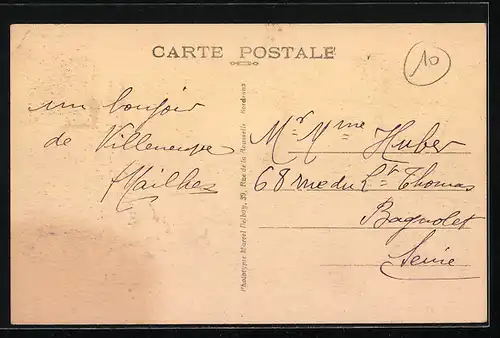 CARTE POSTALE
10
un bonjour
de Villeneuve
Mailhes
Phototypie Marcel Delboy, 39, Rue de la Rousselle - Bordeaux
Mr Mme Huber
68 rue du Lt Thomas
Bagnolet
Seine